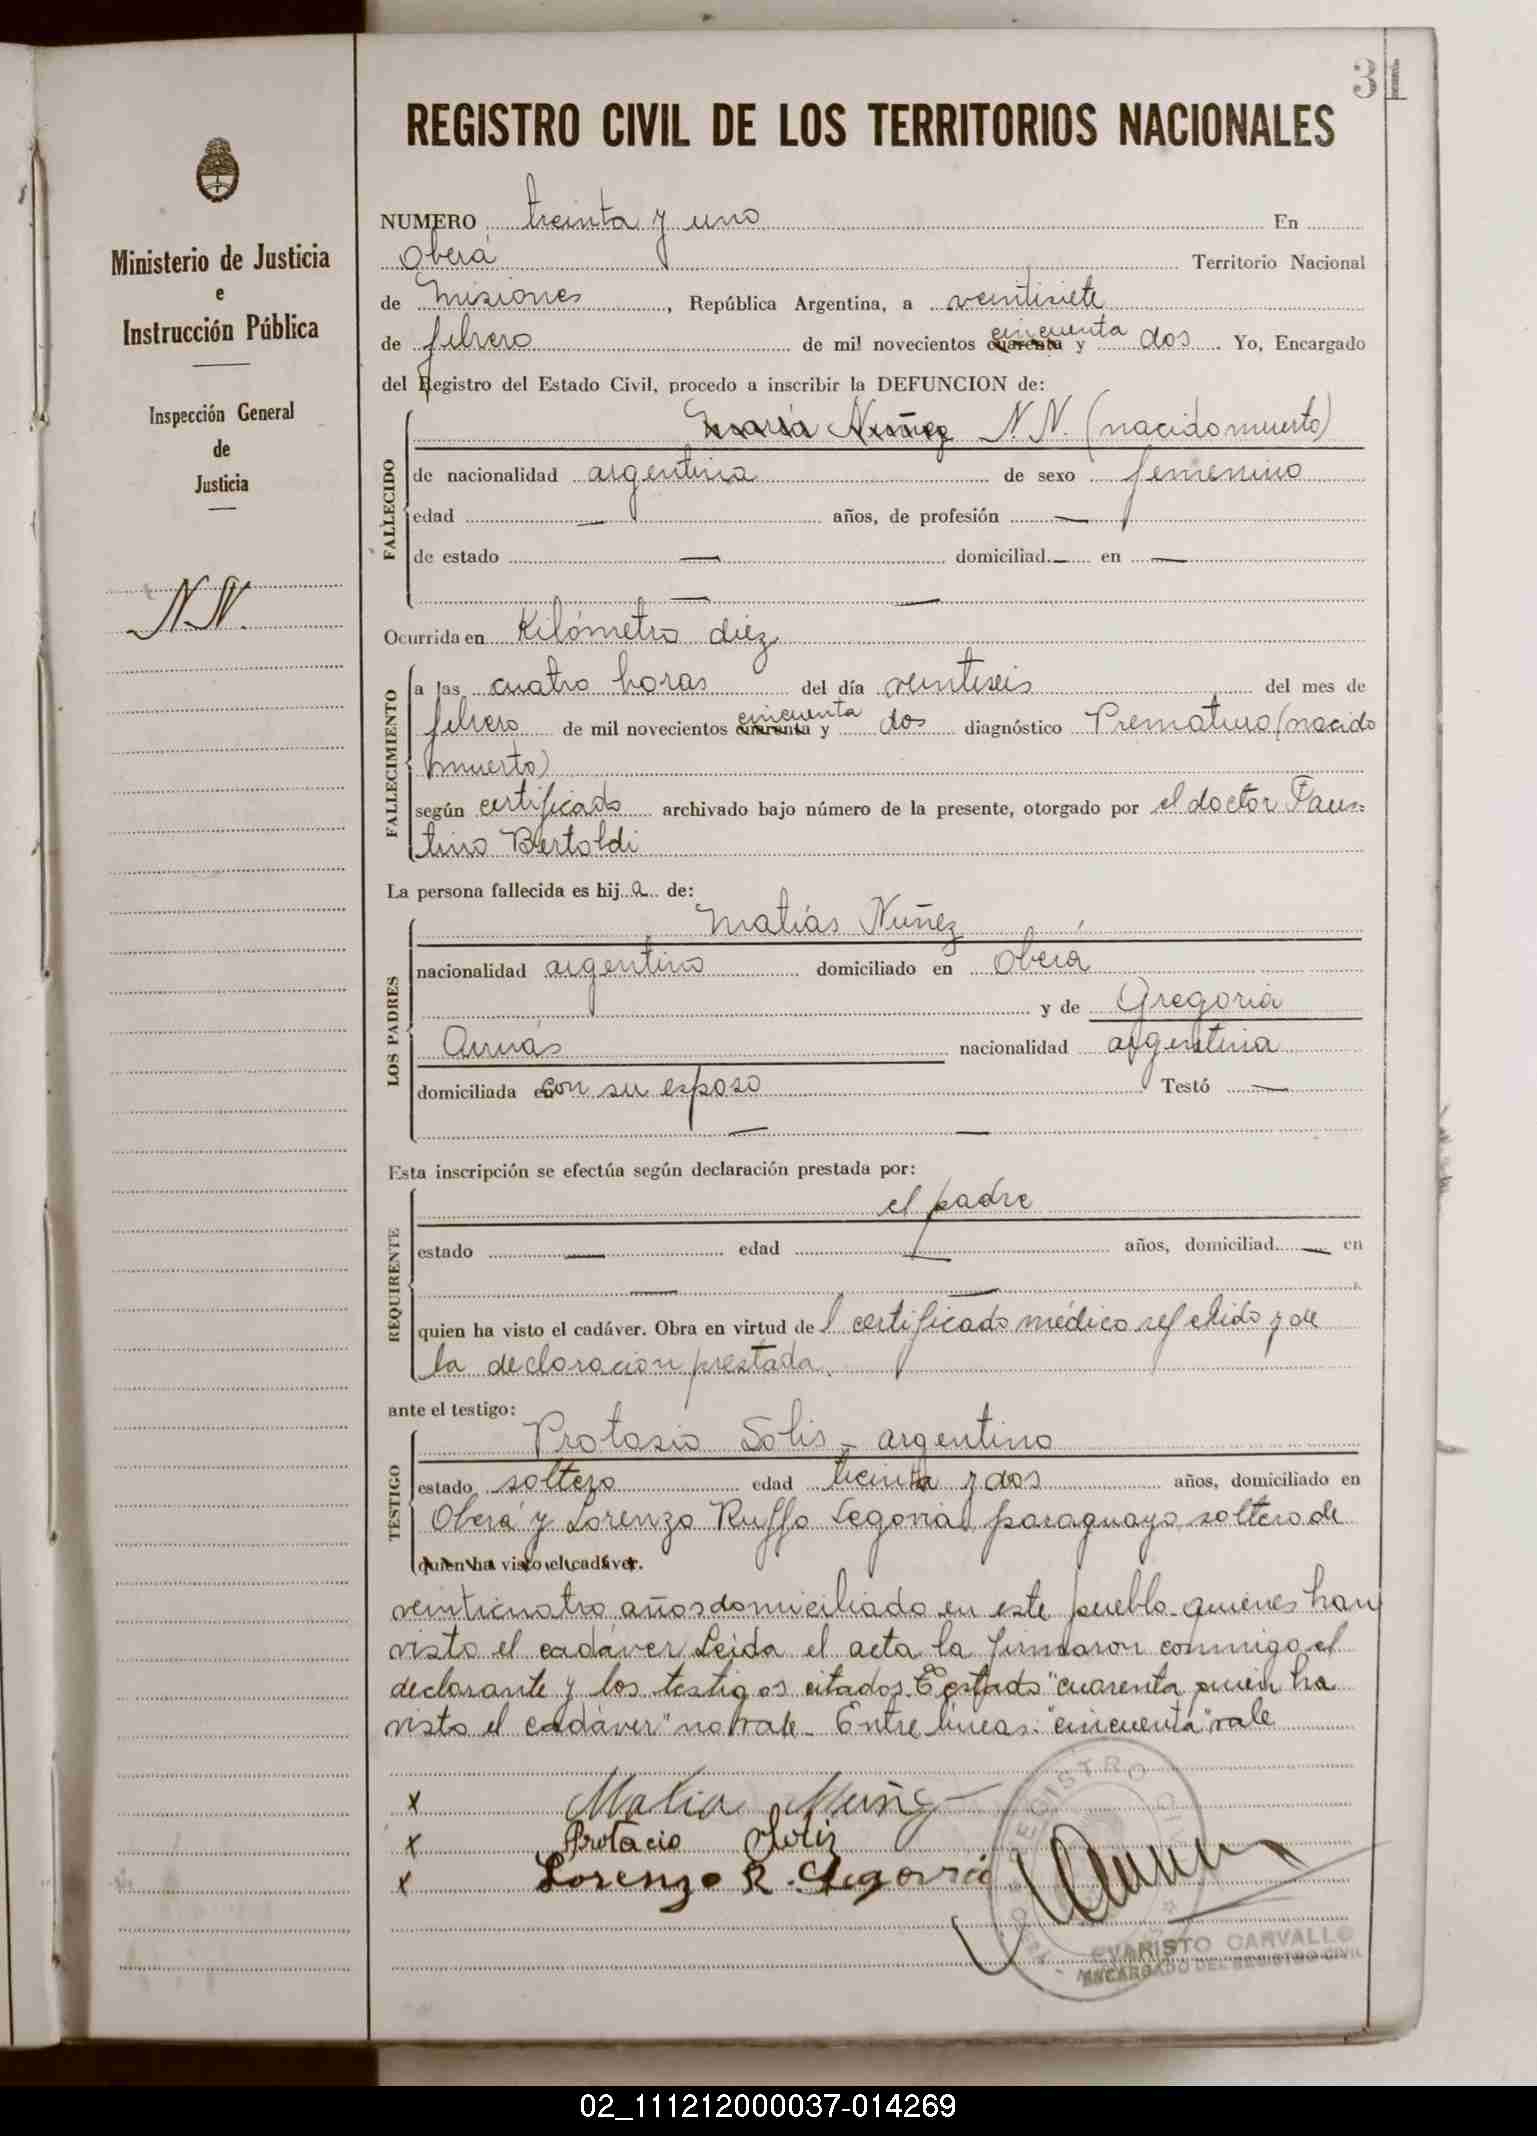 31
REGISTRO CIVIL DE LOS TERRITORIOS NACIONALES
Ministerio de Justicia
e
Instrucción Pública
Inspección General
de
Justicia
N.N.
NUMERO treinta y uno En
Oberá Territorio Nacional
de Misiones, República Argentina, a veintisiete
de febrero de mil novecientos cuarenta cincuenta y dos. Yo, Encargado
del Registro del Estado Civil, procedo a inscribir la DEFUNCION de:
FALLECIDO
María Nuñez N.N. (nacido muerto)
de nacionalidad argentina de sexo femenino
edad — años, de profesión —
de estado — domiciliad — en —
— —
Ocurrida en Kilómetro diez
FALLECIMIENTO
a las cuatro horas del día veintiseis del mes de
febrero de mil novecientos cuarenta cincuenta y dos diagnóstico Prematuro (nacido
muerto)
según certificado archivado bajo número de la presente, otorgado por el doctor Faus-
tino Bertoldi
La persona fallecida es hija de:
LOS PADRES
Matías Nuñez
nacionalidad argentino domiciliado en Oberá
y de Gregoria
nacionalidad argentina
domiciliada en con su esposo Testó —
— —
Esta inscripción se efectúa según declaración prestada por:
REQUIRENTE
el padre
estado — edad — años, domiciliad — en
— —
quien ha visto el cadáver. Obra en virtud del certificado médico referido y de
la declaracion prestada.
ante el testigo:
TESTIGO
Protasio Solis - argentino
estado soltero edad treinta y dos años, domiciliado en
Oberá y Lorenzo Ruffo Segovia paraguayo soltero de
quien ha visto el cadáver.
veinticuatro años domiciliado en este pueblo quienes han
visto el cadáver. Leida el acta la firmaron conmigo el
declarante y los testigos citados. Testado "cuarenta quien ha
visto el cadáver" no vale. Entre lineas: "cincuenta" vale
x Matia Nuñez
x Protacio Soliz
x Lorenzo R. Segovia
REGISTRO CIVIL
EVARISTO CARVALLO
ENCARGADO DEL REGISTRO CIVIL
02_111212000037-014269